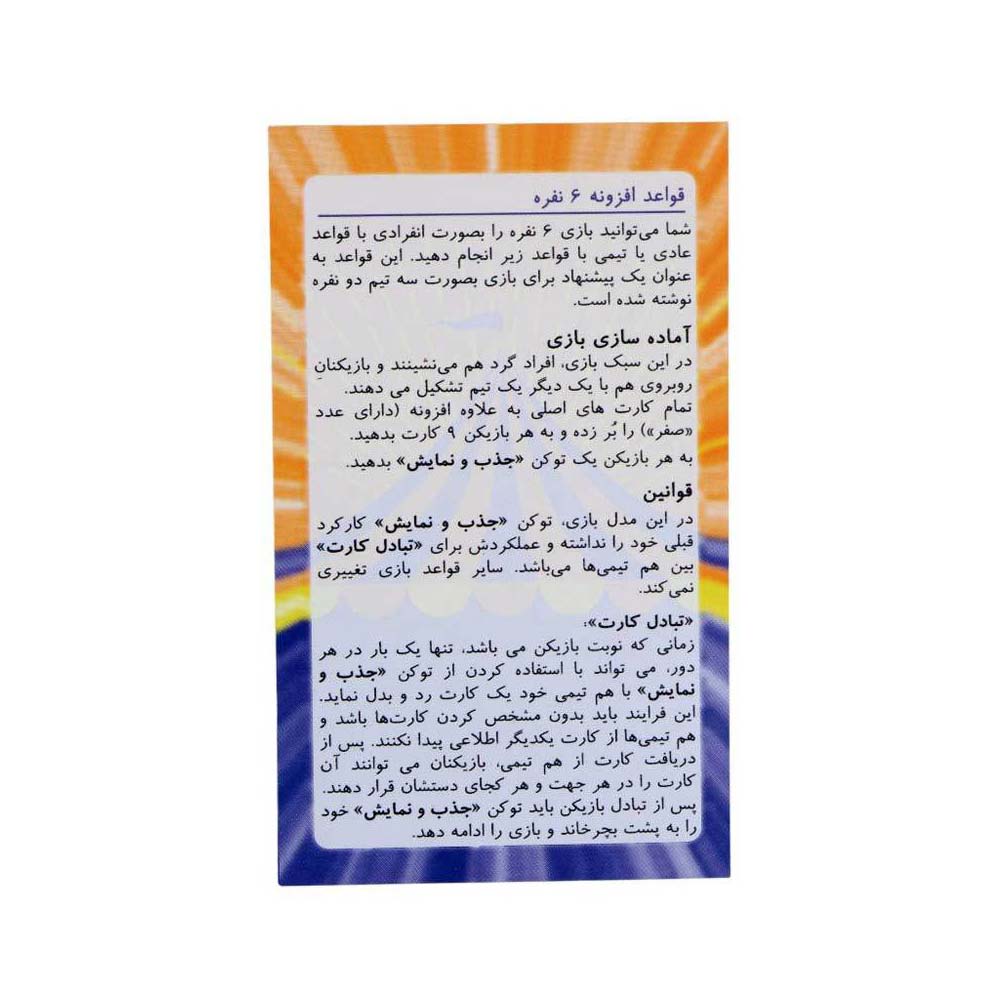 قواعد افزونه ۶ نفره
شما می‌توانید بازی ۶ نفره را بصورت انفرادی با قواعد
عادی یا تیمی با قواعد زیر انجام دهید. این قواعد به
عنوان یک پیشنهاد برای بازی بصورت سه تیم دو نفره
نوشته شده است.
آماده سازی بازی
در این سبک بازی، افراد گرد هم می‌نشینند و بازیکنانِ
روبروی هم با یک دیگر یک تیم تشکیل می دهند.
تمام کارت های اصلی به علاوه افزونه (دارای عدد
«صفر») را بُر زده و به هر بازیکن ۹ کارت بدهید.
به هر بازیکن یک توکن «جذب و نمایش» بدهید.
قوانین
در این مدل بازی، توکن «جذب و نمایش» کارکرد
قبلی خود را نداشته و عملکردش برای «تبادل کارت»
بین هم تیمی‌ها می‌باشد. سایر قواعد بازی تغییری
نمی‌کند.
«تبادل کارت»:
زمانی که نوبت بازیکن می باشد، تنها یک بار در هر
دور، می تواند با استفاده کردن از توکن «جذب و
نمایش» با هم تیمی خود یک کارت رد و بدل نماید.
این فرایند باید بدون مشخص کردن کارت‌ها باشد و
هم تیمی‌ها از کارت یکدیگر اطلاعی پیدا نکنند. پس از
دریافت کارت از هم تیمی، بازیکنان می توانند آن
کارت را در هر جهت و هر کجای دستشان قرار دهند.
پس از تبادل بازیکن باید توکن «جذب و نمایش» خود
را به پشت بچرخاند و بازی را ادامه دهد.